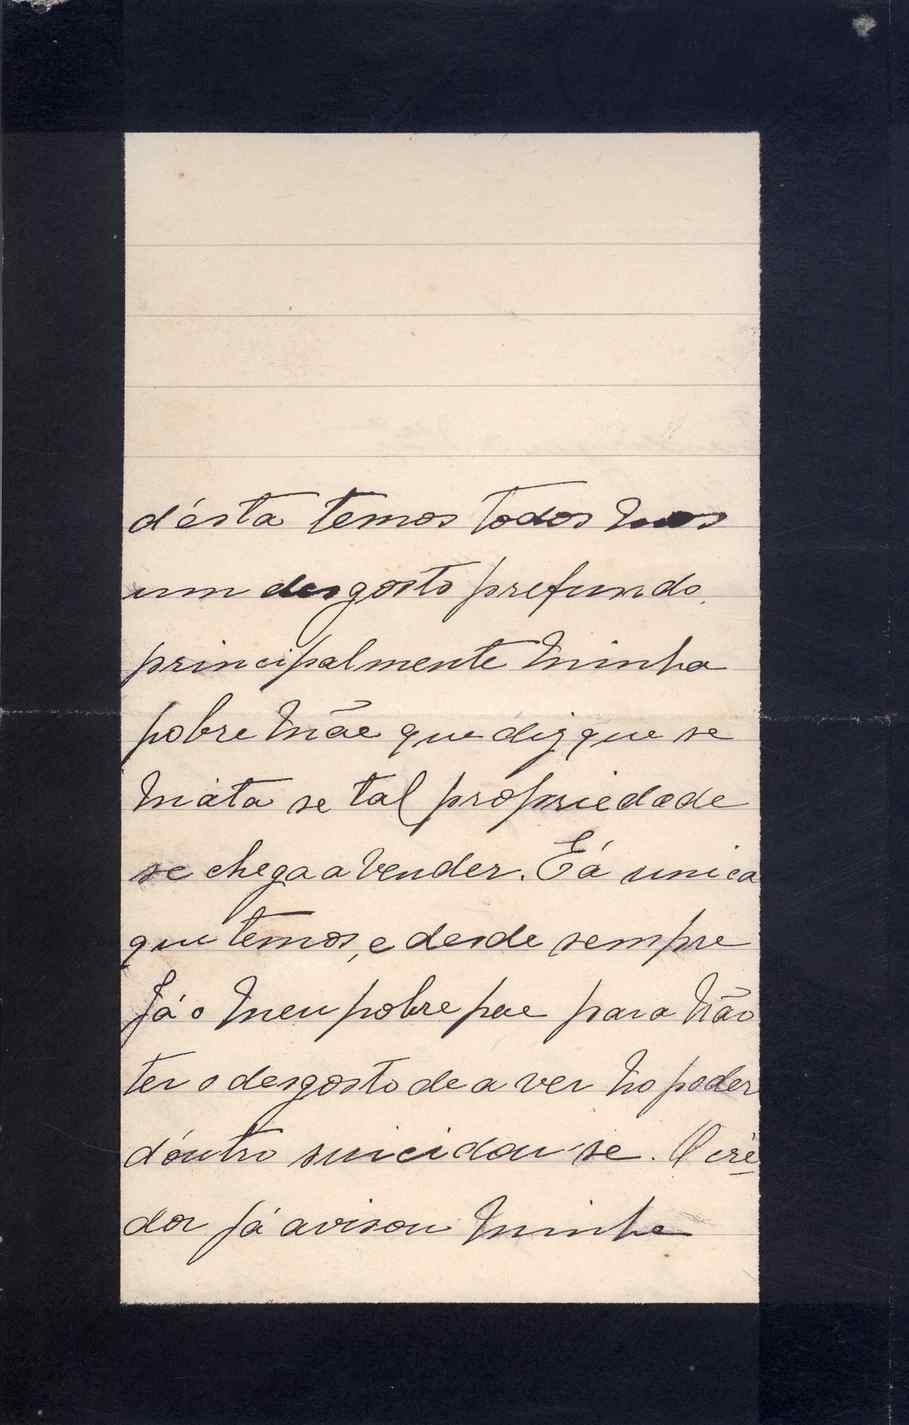 d'ésta temos todos nos
um desgosto prefundo,
principalmente minha
pobre Mãe que diz que se
máta se tal propriedade
se chega a vender. É á unica
que temos, e desde sempre
Já o meu pobre pae para não
ter o desgosto de a ver no poder
d'óutro suicidou-se. O cré
dor já avisou minha